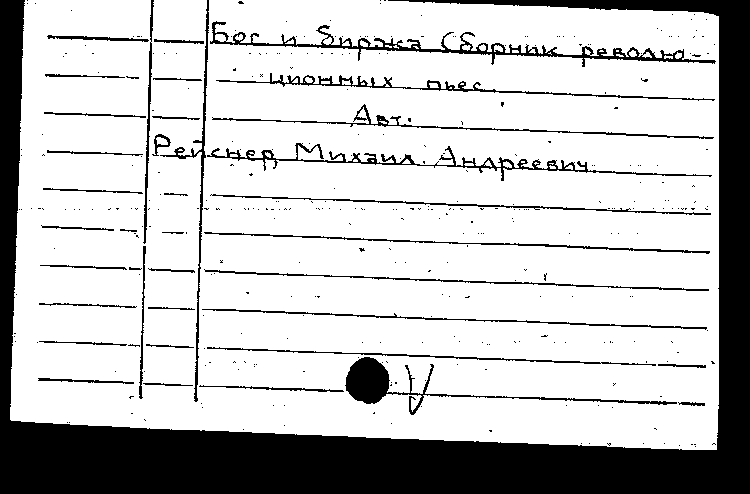 Бог и биржа Сборник револю-
ционных пьес.
Авт.
Рейснер, Михаил Андреевич.